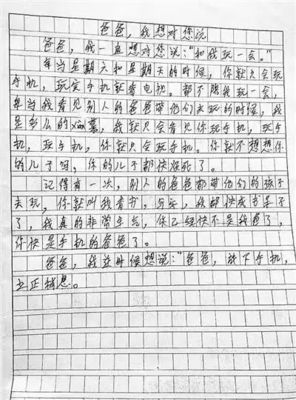 爸爸，我想对您说
爸爸，我一直想对您说："和我玩一会。"
每当是期六和是期天的时候，你就只会玩
手机，玩完手机就看电视。都不陪我玩一会，
每当我看见别人的爸爸带他们去玩的时候，我
是多么的羡慕，我就只会看见你玩手机，玩手
机，玩手机，你就只会玩手机。你就不想想你
的儿子吗，你的儿子都快疯死了。
记得有一次，别人的爸爸都带他们的孩子
去玩，你就叫我看书，写字，我都快成书呆子
了，我真的非常生气，你已经快不是我爸了，
你快是手机的爸爸了。
爸爸，我这时候想说："爸爸，放下手机，
立正稍息。